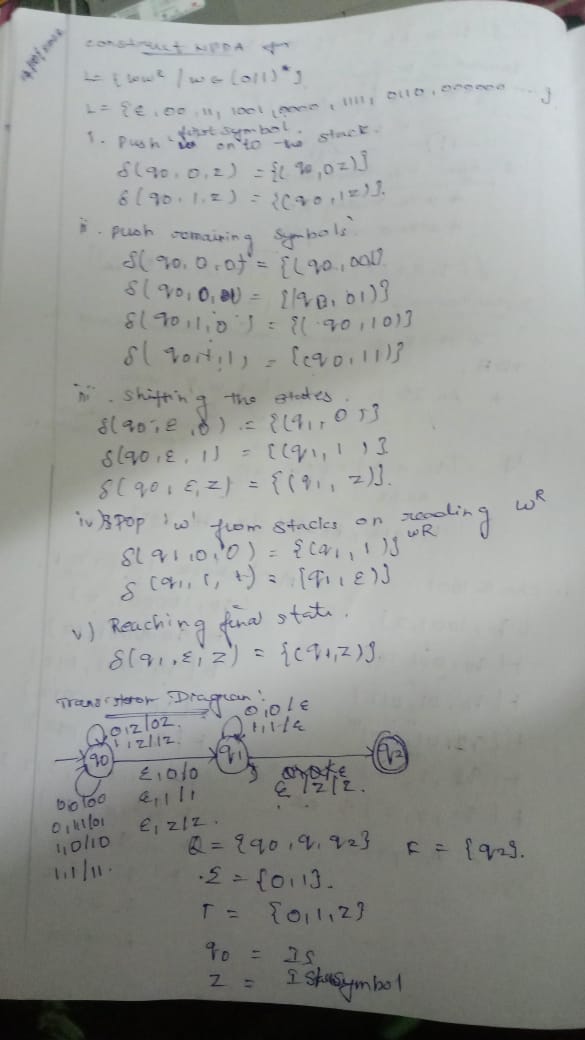 construct NPDA for
L = {ww^R / w ∈ (0,1)*}
L = {ε, 00, 11, 1001, 0000, 1111, 0110, 000000 .... }
i. push first symbol on to the stack.
δ(q0, 0, z) = {(q0, 0z)}
δ(q0, 1, z) = {(q0, 1z)}.
ii. push remaining symbols
δ(q0, 0, 0) = {(q0, 00)}
δ(q0, 0, 1) = {(q0, 01)}
δ(q0, 1, 0) = {(q0, 10)}
δ(q0, 1, 1) = {(q0, 11)}
iii. shifting the states.
δ(q0, ε, 0) = {(q1, 0)}
δ(q0, ε, 1) = {(q1, 1)}
δ(q0, ε, z) = {(q1, z)}.
iv) POP 'w' from stacks on reading w^R
δ(q1, 0, 0) = {(q1, )} w^R
δ(q1, 1, 1) = {q1, ε)}
v) Reaching final state.
δ(q1, ε, z) = {(q, z)}.
Diagram:
0,z/0z. 0,0/ε
1,z/1z. 1,1/ε
q0 q1 q2
0,0/00 ε,0/0
0,1/01 ε,1/1 ε/z/z.
1,0/10 ε,z/z.
1,1/11.
Q = {q0, q1, q2} F = {q2}.
Σ = {0,1}.
Γ = {0,1,z}
q0 = IS
z = I symbol